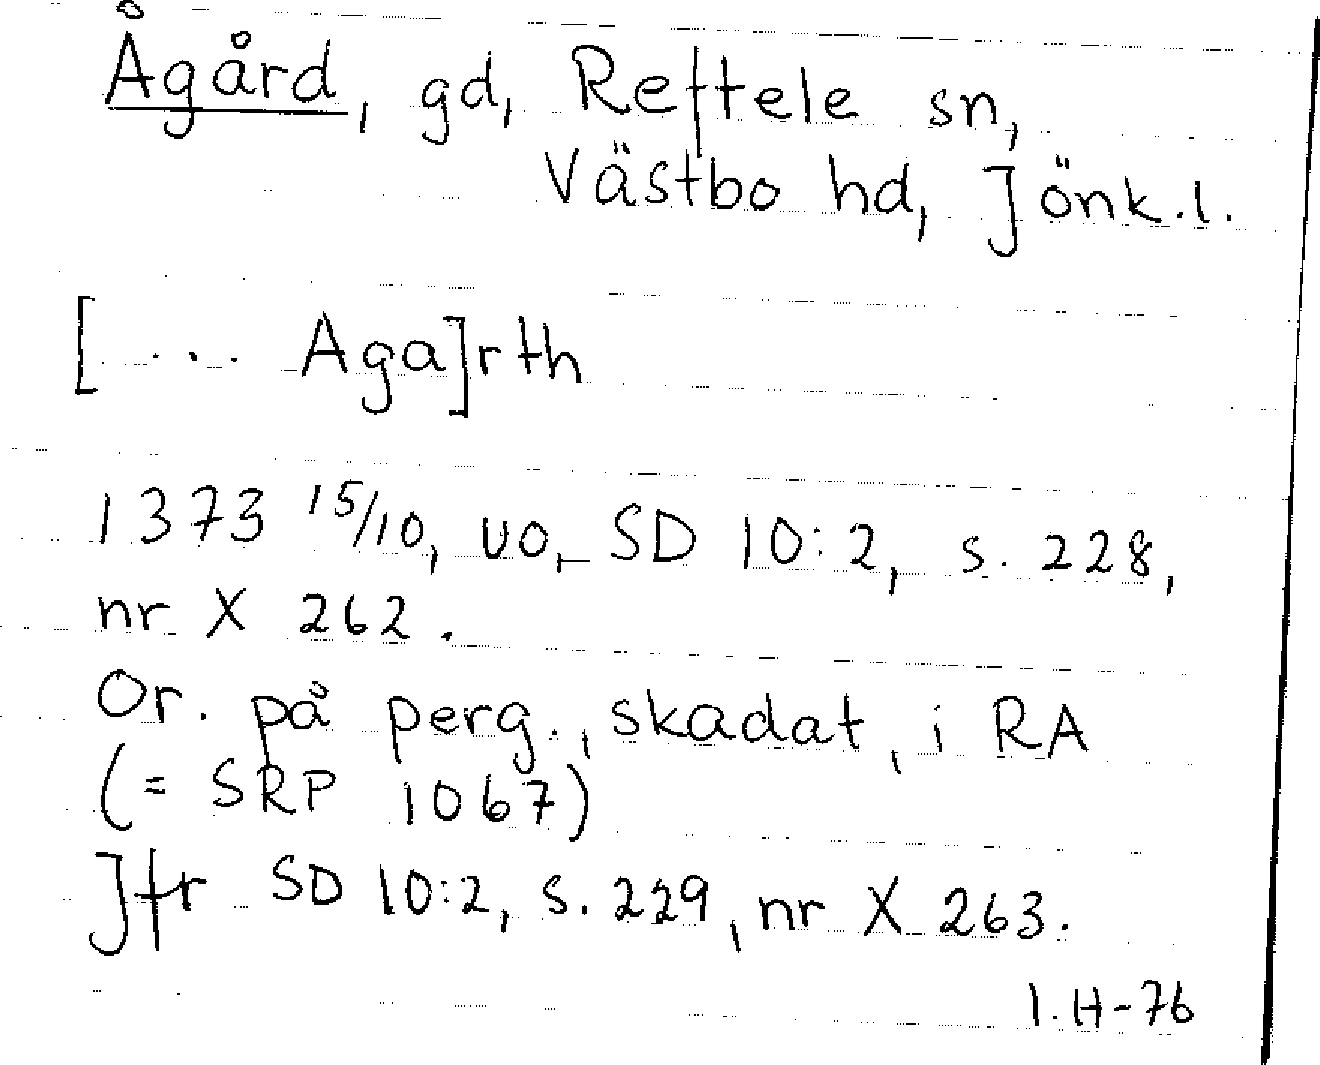 Ågård, gd, Reftele sn,
Västbo hd, Jönk.l.
[... Aga]rth
1373 15/10, uo, SD 10:2, s. 228,
nr X 262.
Or. på perg., skadat, i RA
(= SRP 1067)
Jfr SD 10:2, s. 229, nr X 263.
I.H-76